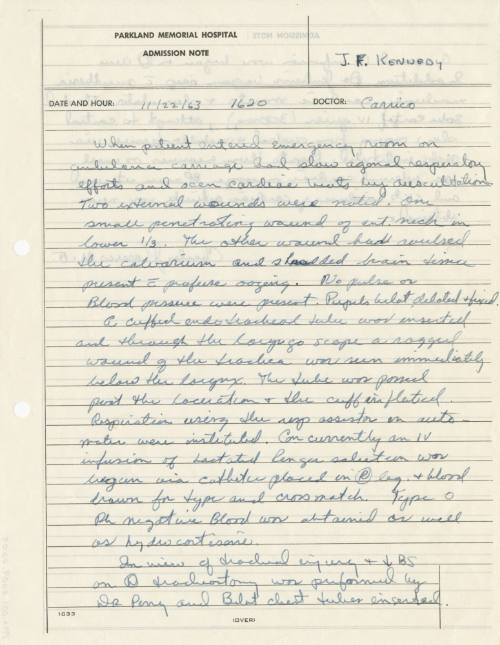 PARKLAND MEMORIAL HOSPITAL
ADMISSION NOTE
J. F. KENNEDY
DATE AND HOUR: 11/22/63 1620 DOCTOR: Carrico
When patient entered emergency room on
ambulance carriage had slow agonal respiratory
efforts and scan cardiac beats by auscultation.
Two external wounds were noted. One
small penetrating wound of ant. neck in
lower 1/3. The other wound had
the calvarium and shredded brain tissue
present c̄ profuse oozing. No pulse or
Blood pressure were present. Pupils bilat dilated + fixed.
A cuffed endotracheal tube was inserted
and through the laryngoscope a ragged
wound of the trachea was seen immediately
below the larynx. The tube was passed
past the laceration + the cuff inflated.
Respiration using the resp assistor on auto-
matic were instituted. Concurrently an IV
infusion of lactated ringer solution was
begun via catheter placed in Ⓡ leg. + blood
drawn for type and crossmatch. Type O
Rh negative Blood was obtained as well
as hydrocortisone.
In view of tracheal injury + ↓ BS
on Ⓡ tracheostomy was preformed by
Dr Perry and Bilat chest tubes inserted.
1033
(OVER)